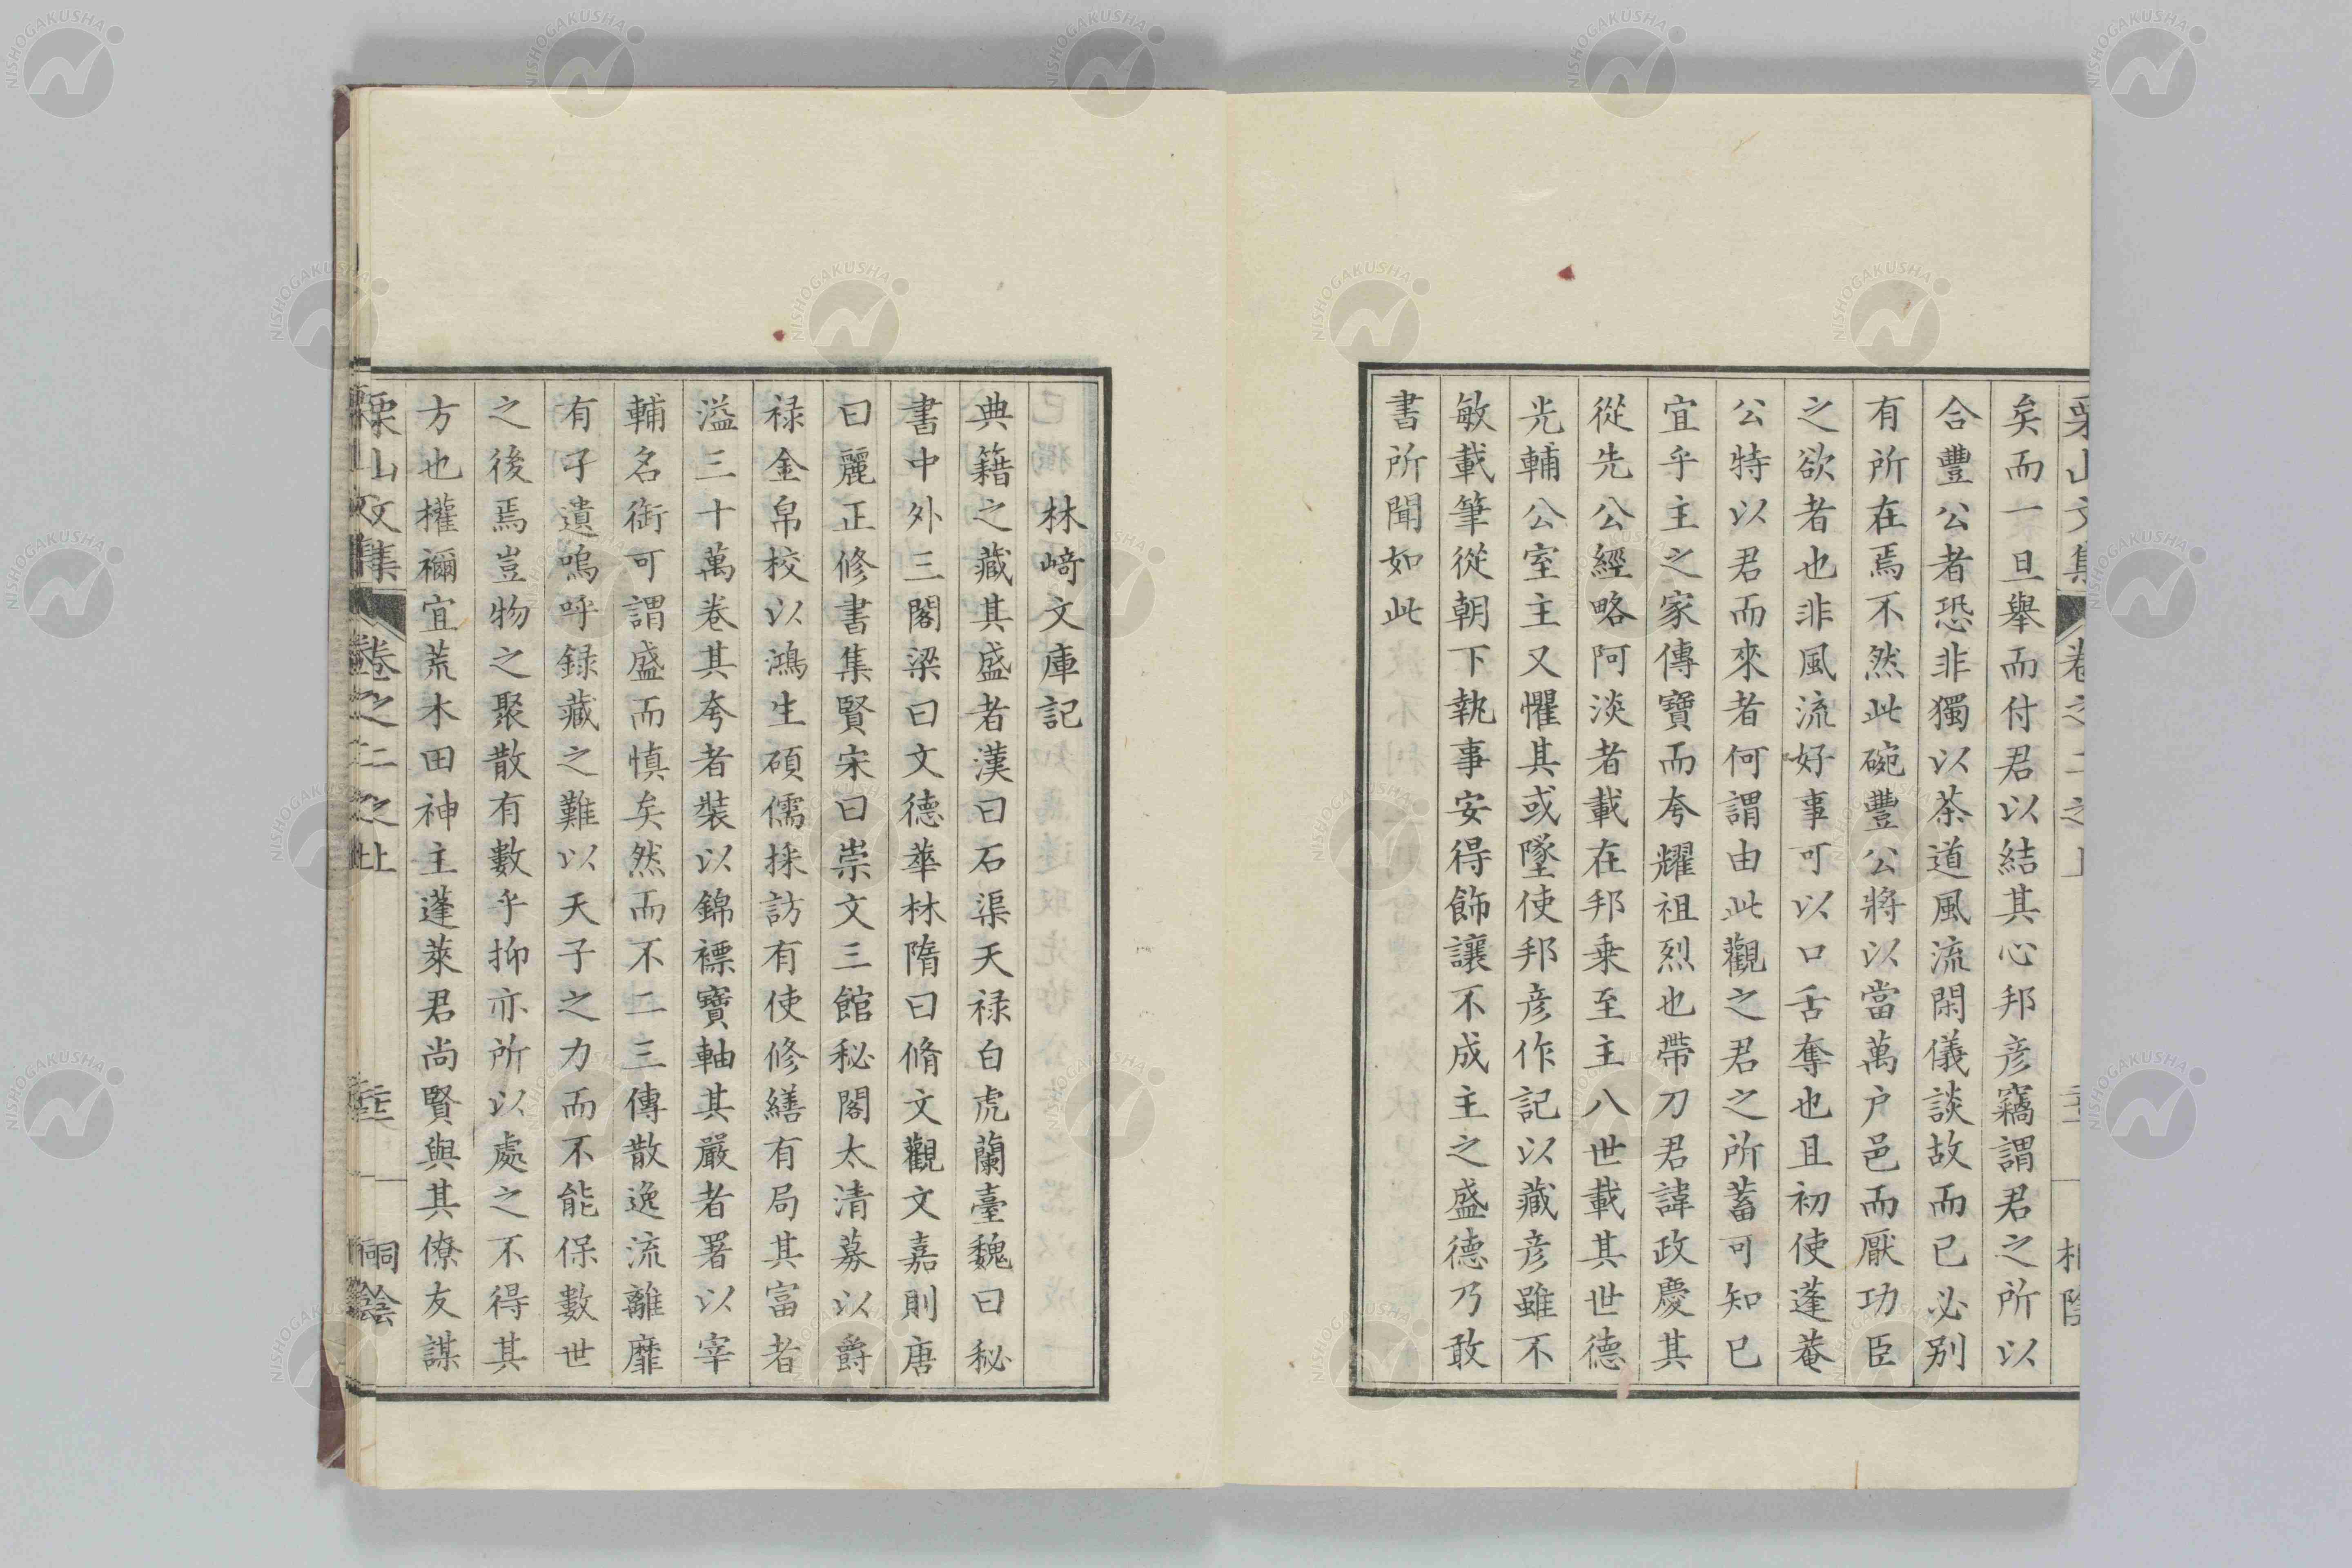 矣而一旦舉而付君以結其心邦彦竊謂君之所以
合豐公者恐非獨以茶道風流閑儀談故而已必别
有所在焉不然此碗豐公將以當萬户邑而厭功臣
之欲者也非風流好事可以口舌奪也且初使蓬菴
公特以君而來者何謂由此觀之君之所蓄可知已
宜乎主之家傳寶而夸耀祖烈也帶刀君諱政慶其
從先公經略阿淡者載在邦乗至主八世載其世德
光輔公室主又懼其或墜使邦彦作記以藏彦雖不
敏載筆從朝下執事安得飾讓不成主之盛德乃敢
書所聞如此
林﨑文庫記
典籍之藏其盛者漢曰石渠天禄白虎蘭臺魏曰秘
書中外三閣梁曰文德華林隋曰脩文觀文嘉則唐
曰麗正修書集賢宋曰崇文三館秘閣太清募以爵
禄金帛校以鴻生碩儒採訪有使修繕有局其富者
溢三十萬卷其夸者裝以錦褾寶軸其嚴者署以宰
輔名銜可謂盛而慎矣然而不二三傳散逸流離靡
有孑遺嗚呼録藏之難以天子之力而不能保數世
之後焉豈物之聚散有數乎抑亦所以處之不得其
方也權禰宜荒木田神主蓬萊君尚賢與其僚友謀
栗山文集 卷之二之上
NISHOGAKUSHA